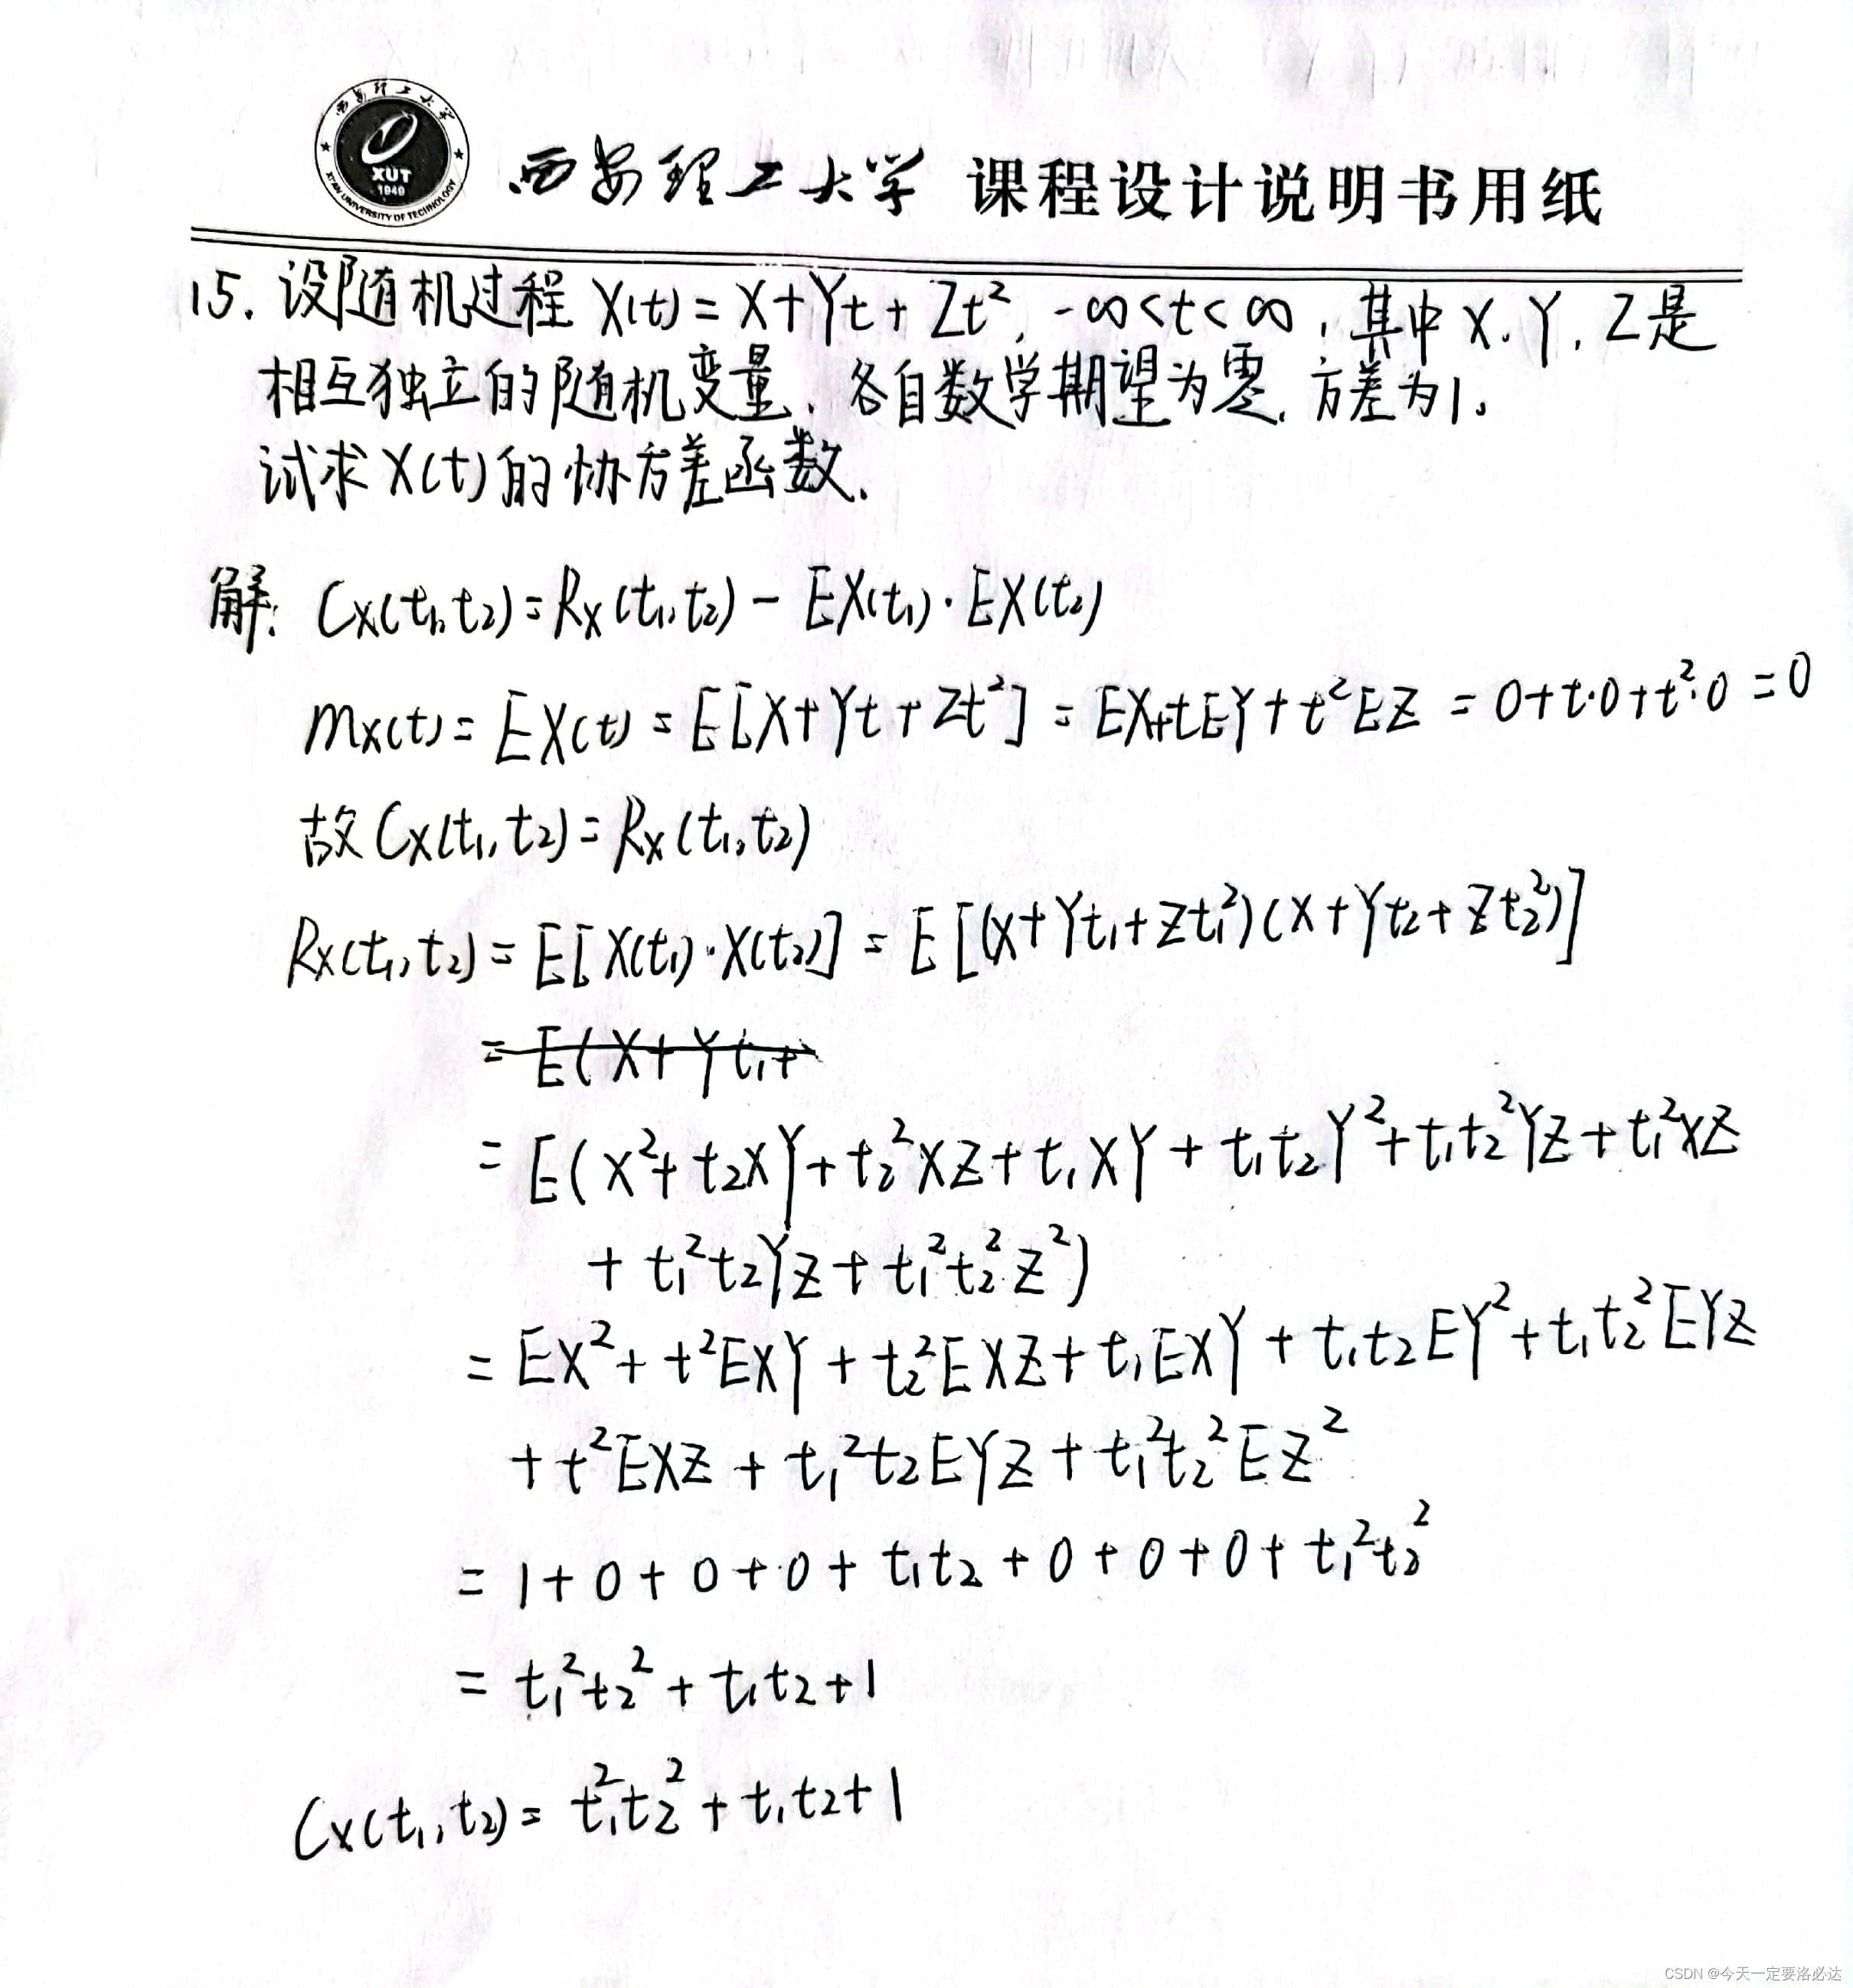 西安理工大学
XUT
1949
XI'AN UNIVERSITY OF TECHNOLOGY
西安理工大学 课程设计说明书用纸
15. 设随机过程 X(t) = X+Yt+Zt², -∞<t<∞, 其中 X, Y, Z是
相互独立的随机变量, 各自数学期望为零, 方差为1。
试求X(t)的协方差函数.
解: Cx(t₁,t₂)=Rx(t₁,t₂) - EX(t₁)·EX(t₂)
mx(t) = EX(t) = E[X+Yt+Zt²] = EX+tEY+t²EZ = 0+t·0+t²·0 = 0
故 Cx(t₁,t₂)=Rx(t₁,t₂)
Rx(t₁,t₂) = E[X(t₁)·X(t₂)] = E[(X+Yt₁+Zt₁²)(X+Yt₂+Zt₂²)]
= E(X+Yt₁+
= E(X²+t₂XY+t₂²XZ+t₁XY+t₁t₂Y²+t₁t₂²YZ+t₁²XZ
+ t₁²t₂YZ+t₁²t₂²Z²)
= EX²+t²EXY+t₂²EXZ+t₁EXY+t₁t₂EY²+t₁t₂²EYZ
+t²EXZ+t₁²t₂EYZ+t₁²t₂²EZ²
= 1+0+0+0+t₁t₂+0+0+0+t₁²t₂²
= t₁²t₂²+t₁t₂+1
Cx(t₁,t₂)= t₁²t₂²+t₁t₂+1
CSDN @今天一定要洛必达